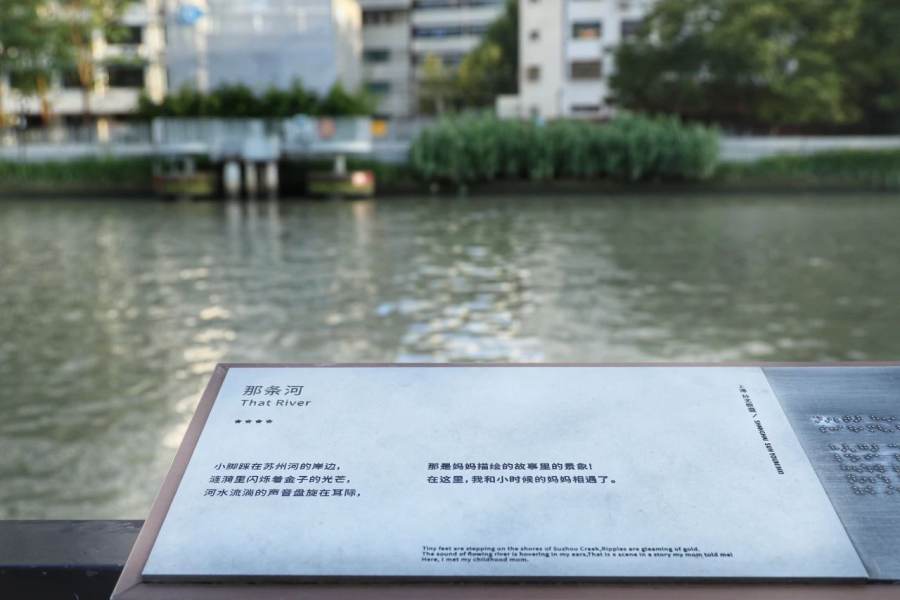 那条河
That River
★★★★
小脚踩在苏州河的岸边，
涟漪里闪烁着金子的光芒，
河水流淌的声音盘旋在耳际，
那是妈妈描绘的故事里的景象！
在这里，我和小时候的妈妈相遇了。
Tiny feet are stepping on the shores of Suzhou Creek,Ripples are gleaming of gold.
The sound of flowing river is hovering in my ears,That is a scene in a story my mom told me!
Here, I met my childhood mom.